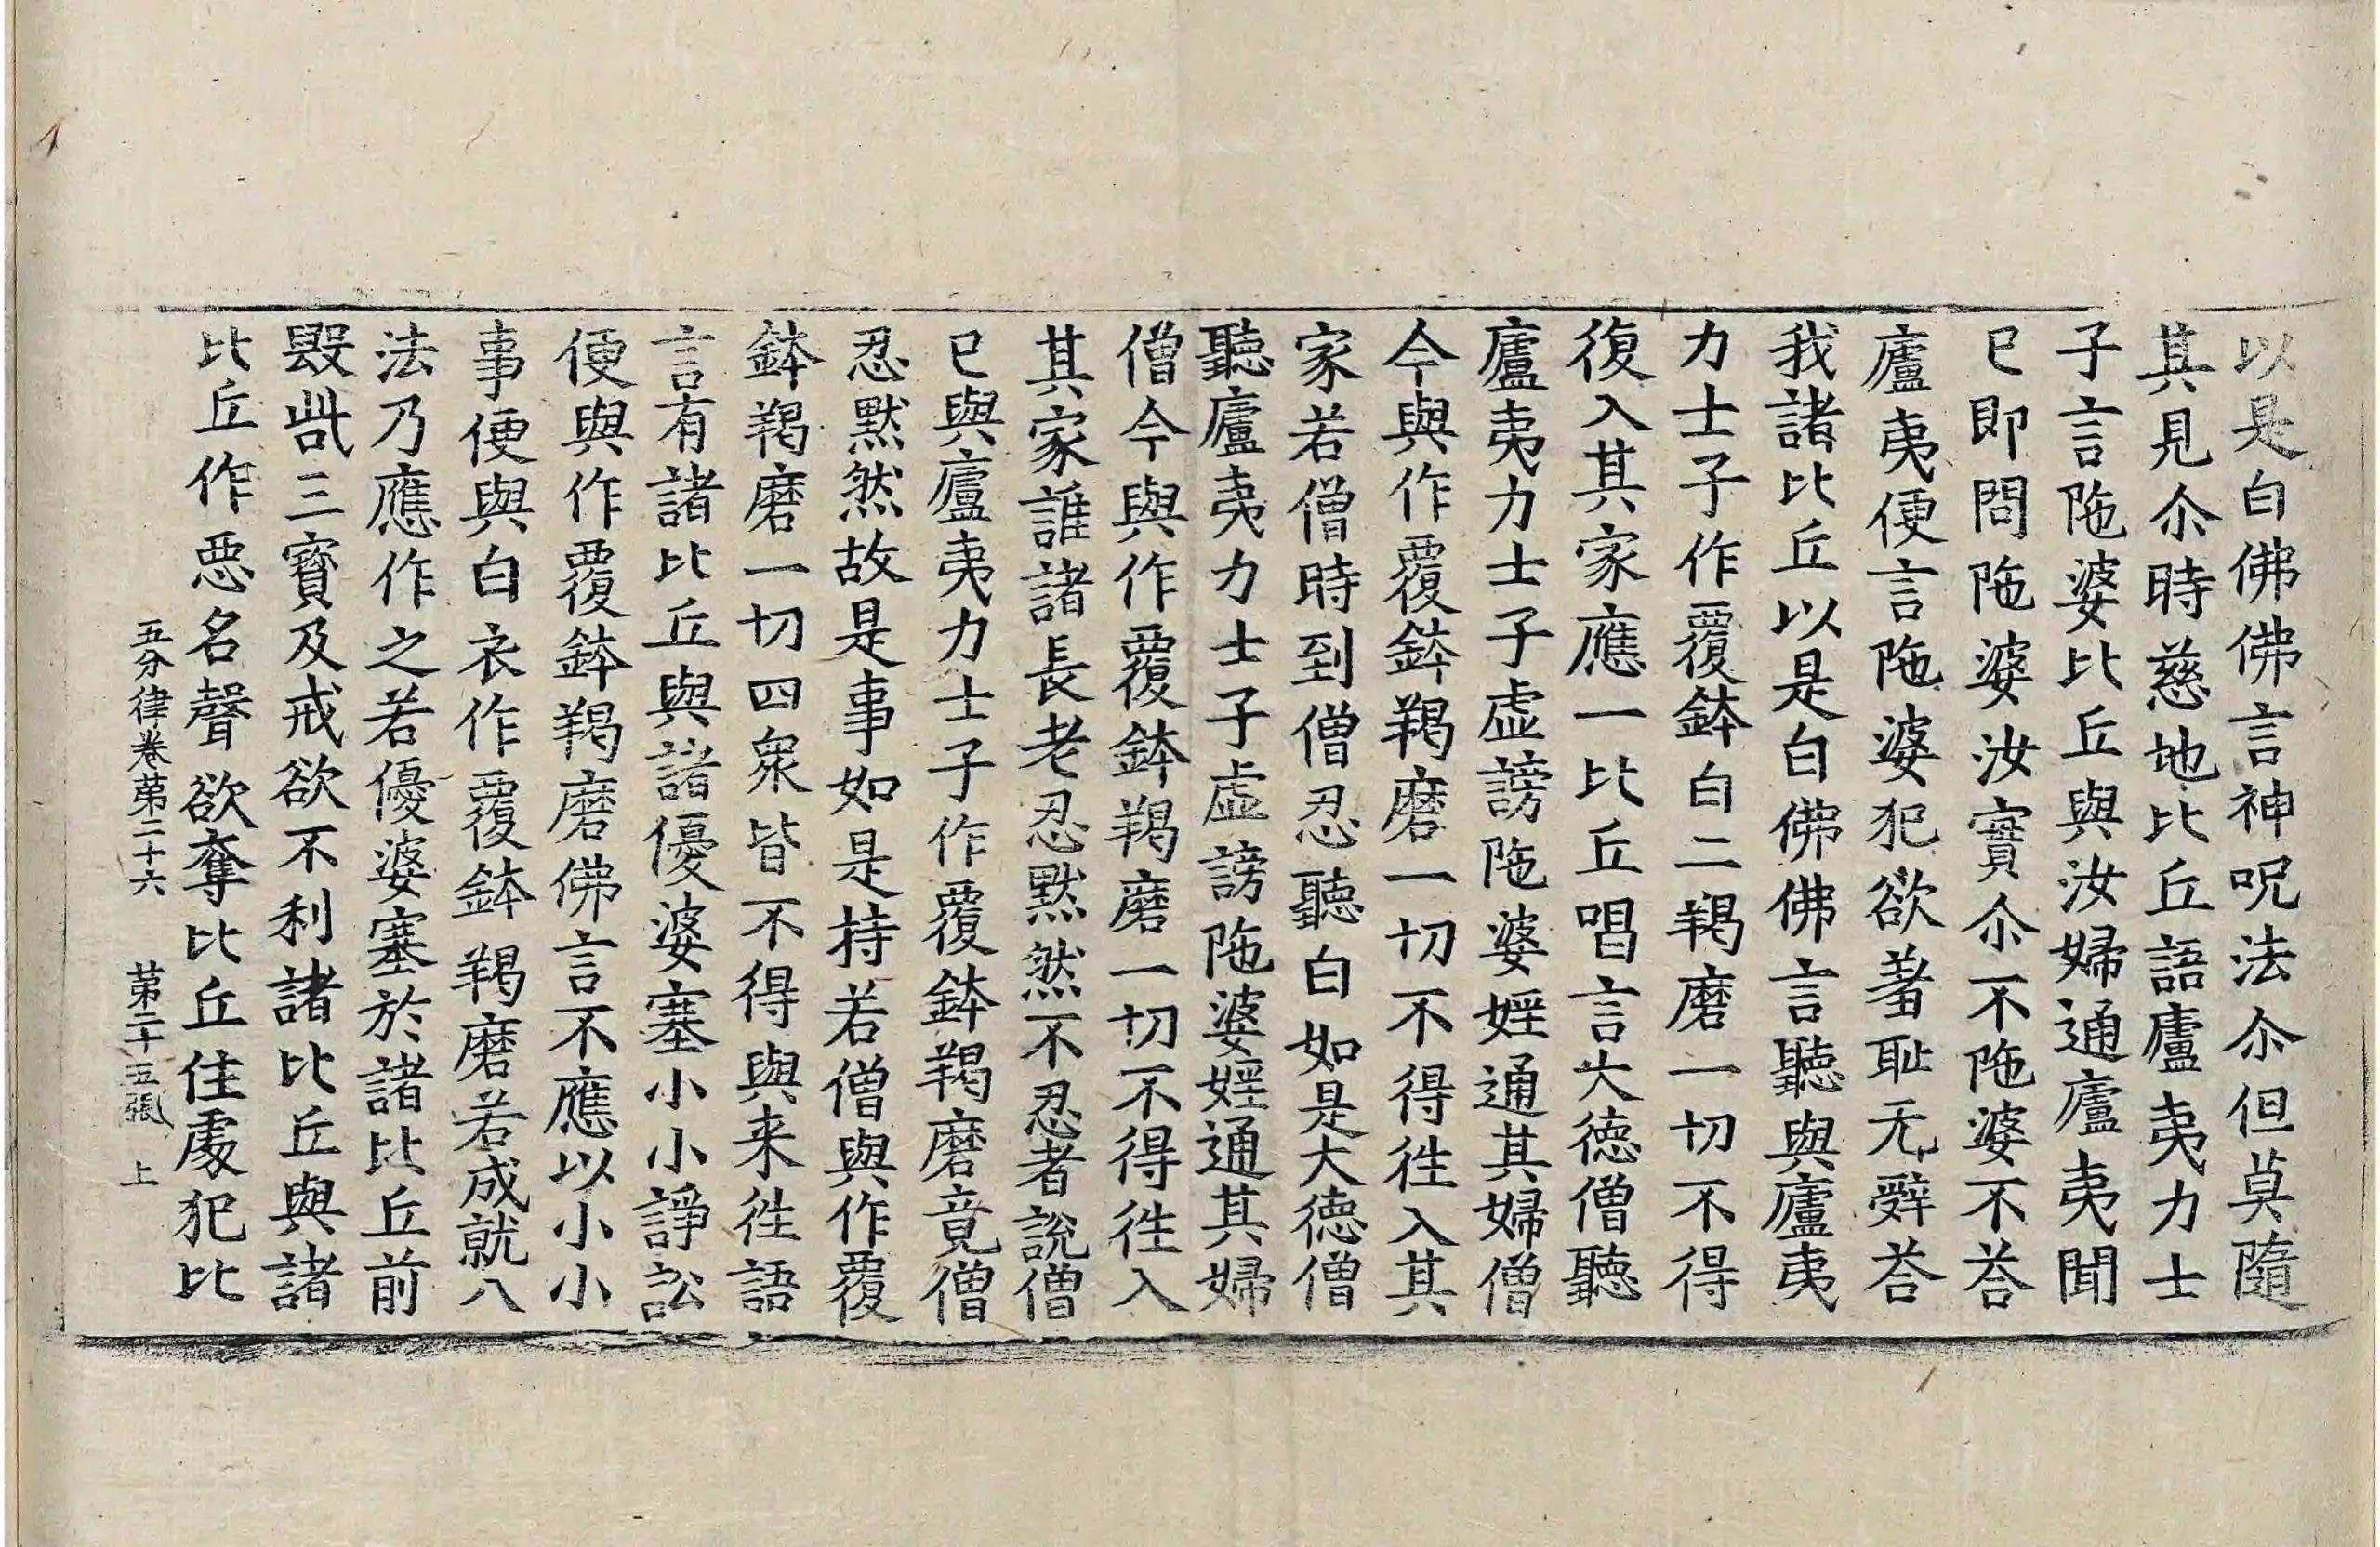 以是白佛佛言神呪法尒但莫隨
其見尒時慈地比丘語廬夷力士
子言陁婆比丘與汝婦通廬夷聞
已即問陁婆汝實尒不陁婆不荅
廬夷便言陁婆犯欲羞耻无辤荅
我諸比丘以是白佛佛言聽與廬夷
力士子作覆鉢白二羯磨一切不得
復入其家應一比丘唱言大德僧聽
廬夷力士子虛謗陁婆婬通其婦僧
今與作覆鉢羯磨一切不得徃入其
家若僧時到僧忍聽白如是大德僧
聽廬夷力士子虛謗陁婆婬通其婦
僧今與作覆鉢羯磨一切不得徃入
其家誰諸長老忍默然不忍者說僧
已與廬夷力士子作覆鉢羯磨竟僧
忍默然故是事如是持若僧與作覆
鉢羯磨一切四衆皆不得與来徃語
言有諸比丘與諸優婆塞小小諍訟
便與作覆鉢羯磨佛言不應以小小
事便與白衣作覆鉢羯磨若成就八
法乃應作之若優婆塞於諸比丘前
毀呰三寶及戒欲不利諸比丘與諸
比丘作惡名聲欲奪比丘住處犯比
五分律卷苐二十六 苐二十五張 上